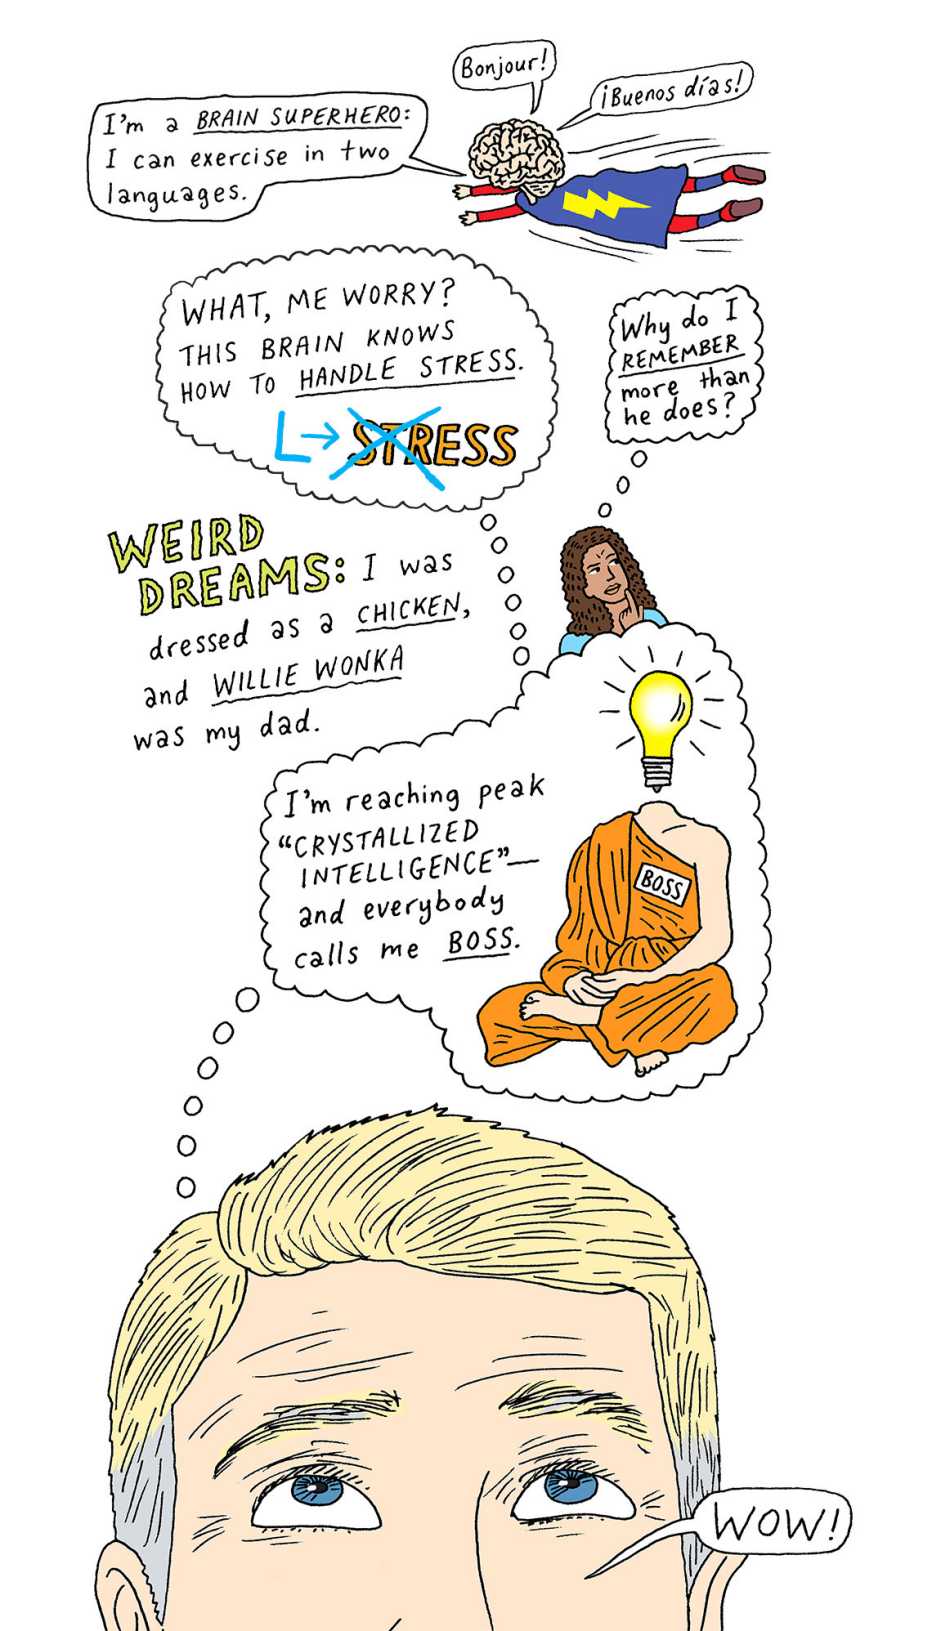 Bonjour!
¡Buenos días!
I'm a BRAIN SUPERHERO:
I can exercise in two
languages.
WHAT, ME WORRY?
THIS BRAIN KNOWS
HOW TO HANDLE STRESS.
STRESS
Why do I
REMEMBER
more than
he does?
WEIRD
DREAMS: I was
dressed as a CHICKEN,
and WILLIE WONKA
was my dad.
I'm reaching peak
"CRYSTALLIZED
INTELLIGENCE"—
and everybody
calls me BOSS.
BOSS
WOW!